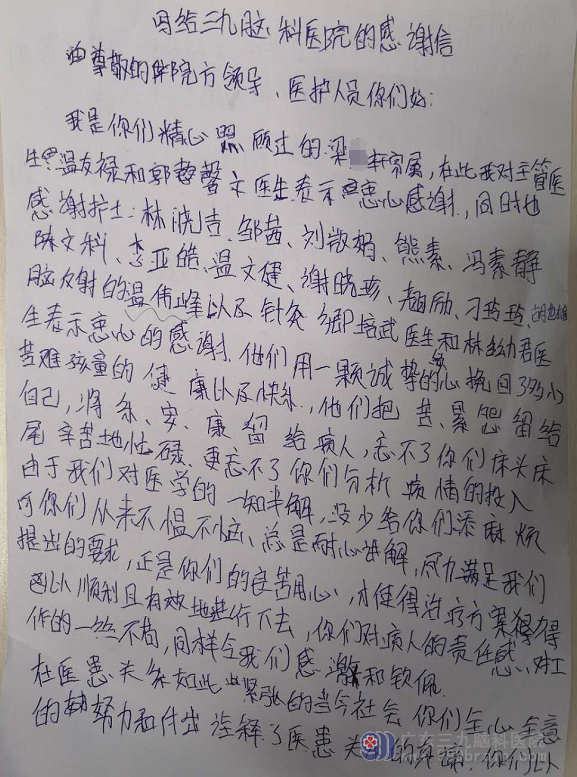 写给三九脑科医院的感谢信
尊敬的院方领导、医护人员你们好:
我是你们精心照顾过的梁 轩家属,在此我对主管医
生温友禄和郭 馨文医生表示衷心感谢,同时也
感谢护士:林晓吉、邹茜、刘敬娟、熊素、冯素静
陈文科、李亚皓、温文健、谢晓 、 励、刁玲玲、
脑反射的温伟峰以及针灸邹培武医生和林幼君医
生表示忠心的感谢.他们用一颗诚挚的心挽回了多少
苦难孩童的健康以及快乐,他们把苦、累怨留给
自己,将乐、安、康留给病人,忘不了你们床头床
尾辛苦地忙碌.更忘不了你们分析病情的投入
由于我们对医学的一知半解,没少给你们添麻烦
可你们从来不愠不恼、总是耐心讲解,尽力满足我们
提出的要求,正是你们的良苦用心,才使得治疗方案得
以顺利且有效地进行下去,你们对病人的责任感、对工
作的一丝不苟,同样令我们感激和钦佩.
在医患关系如此紧张的当今社会 你们全心全意
的努力和付出诠释了医患关 的 .你们以
广东三九脑科医院